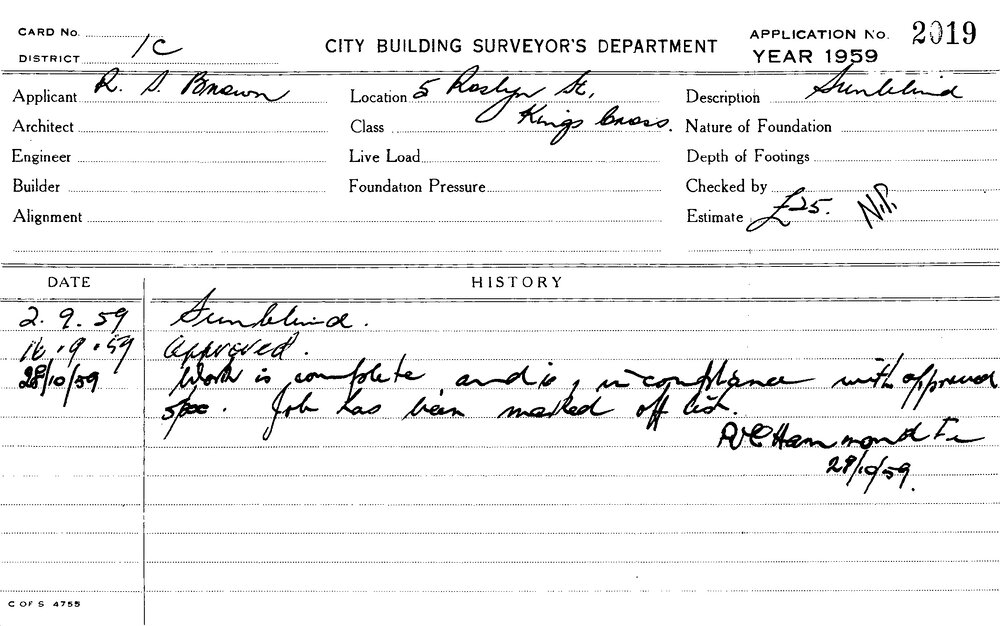 CARD No.
DISTRICT 1C
CITY BUILDING SURVEYOR'S DEPARTMENT
APPLICATION No. 2019
YEAR 1959
Applicant R. S. Brown
Location 5 Roslyn St,
Kings Cross.
Description Sunblind
Architect
Class
Nature of Foundation
Engineer
Live Load
Depth of Footings
Builder
Foundation Pressure
Checked by
Alignment
Estimate £25. N.P.
DATE HISTORY
2.9.59 Sunblind.
16.9.59 Approved.
28/10/59 Work is complete and is, in compliance with approved
spec. Job has been marked off list.
Hammond
29/10/59.
C OF S 4755